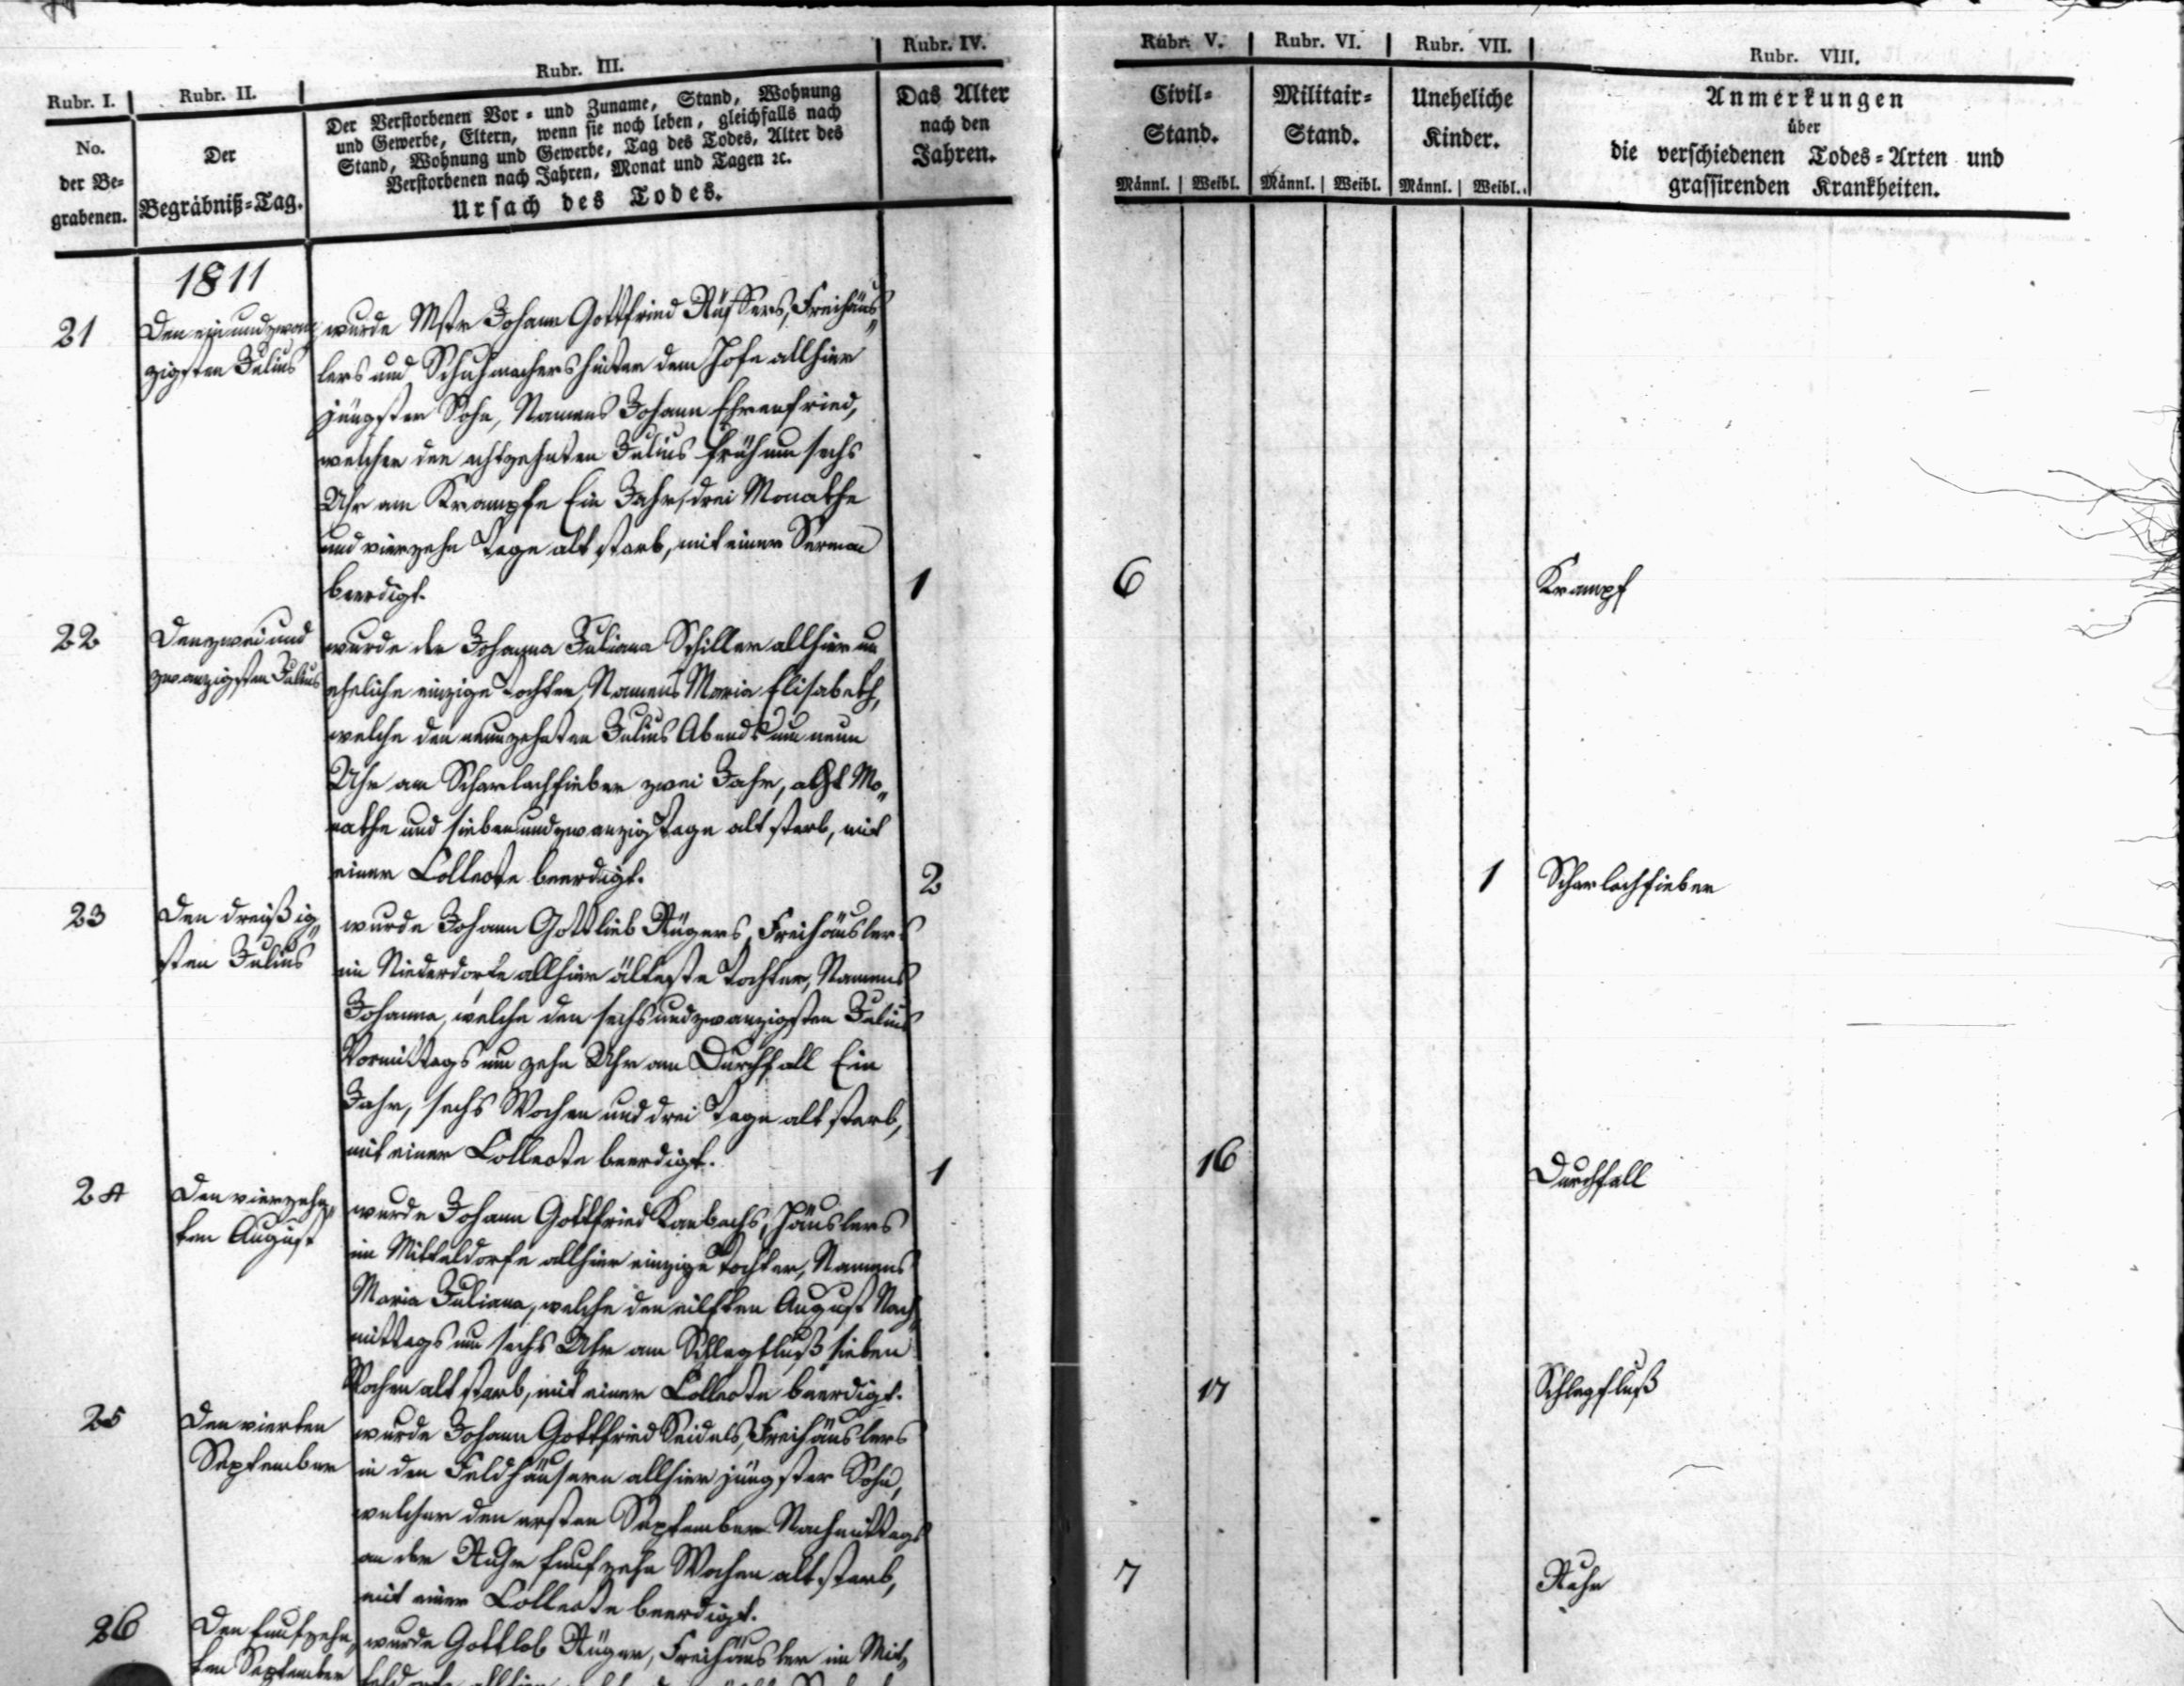 Rubr. I.
No.
der Be=
grabenen.
Rubr. II.
Der
Begräbniß=Tag.
Rubr. III.
Der Verstorbenen Vor= und Zuname, Stand, Wohnung
und Gewerbe, Eltern, wenn sie noch leben, gleichfalls nach
Stand, Wohnung und Gewerbe, Tag des Todes, Alter des
Verstorbenen nach Jahren, Monat und Tagen ꝛc.
Ursach des Todes.
Rubr. IV.
Das Alter
nach den
Jahren.
Rubr. V.
Civil=
Stand.
Männl. | Weibl.
Rubr. VI.
Militair=
Stand.
Männl. | Weibl.
Rubr. VII.
Uneheliche
Kinder.
Männl. | Weibl.
Rubr. VIII.
Anmerkungen
über
die verschiedenen Todes=Arten und
grassirenden Krankheiten.
1811
21
Den ein und zwan
zigsten Julius
wurde Mstr Johann Gottfried Rüffers, Freihäus„
lers und Schuhmachers hinter dem Hofe allhier
jüngster Sohn, Namens Johann Ehrenfried,
welcher den achtzehnten Julius früh um sechs
Uhr am Krampfe Ein Jahr, drei Monathe
und vierzehn Tage alt starb, mit einer Sermon
beerdigt.
1
6
Krampf
22
Den zwei und
zwanzigsten Julius
wurde der Johanna Juliana Schiller allhier un
eheliche einzige Tochter, Namens Maria Elisabeth,
welche den neunzehnten Julius Abends um neun
Uhr am Scharlachfieber zwei Jahr, acht Mo„
nathe und siebenundzwanzig Tage alt starb, mit
einer Collecte beerdigt.
2
1
Scharlachfieber
23
Den dreißig„
sten Julius
wurde Johann Gottlieb Rügers, Freihäuslers
im Niederdorfe allhier älteste Tochter, Namens
Johanna, welche den sechsundzwanzigsten Julius
Vormittags um zehn Uhr am Durchfall Ein
Jahr, sechs Wochen und drei Tage alt starb,
mit einer Collecte beerdigt.
1
16
Durchfall
24
Den vierzehn„
ten August
wurde Johann Gottfried Kambachs, Häuslers
im Mitteldorfe allhier einzige Tochter, Namens
Maria Juliana, welche den eilften August Nach„
mittags um sechs Uhr am Schlagfluß sieben
Wochen alt starb, mit einer Collecte beerdigt.
17
Schlagfluß
25
Den vierten
September
wurde Johann Gottfried Seidels, Freihäuslers
in den Feldhäusern allhier jüngster Sohn,
welcher den ersten September Nachmittags
an der Ruhr funfzehn Wochen alt starb,
mit einer Collecte beerdigt.
7
Ruhr
26
Den funfzehn„
ten September
wurde Gottlob Rüger, Freihäusler im Mit„
teldorfe allhier